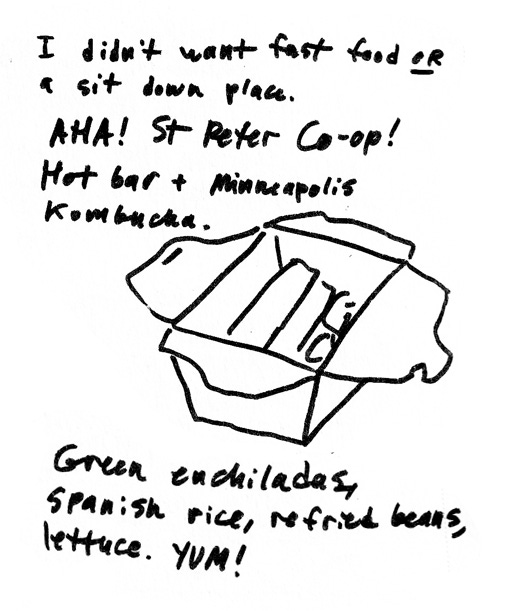 I didn't want fast food OR
a sit down place.
AHA! St Peter Co-op!
Hot bar + Minneapolis
Kombucha.
Green enchiladas,
spanish rice, refried beans,
lettuce. YUM!